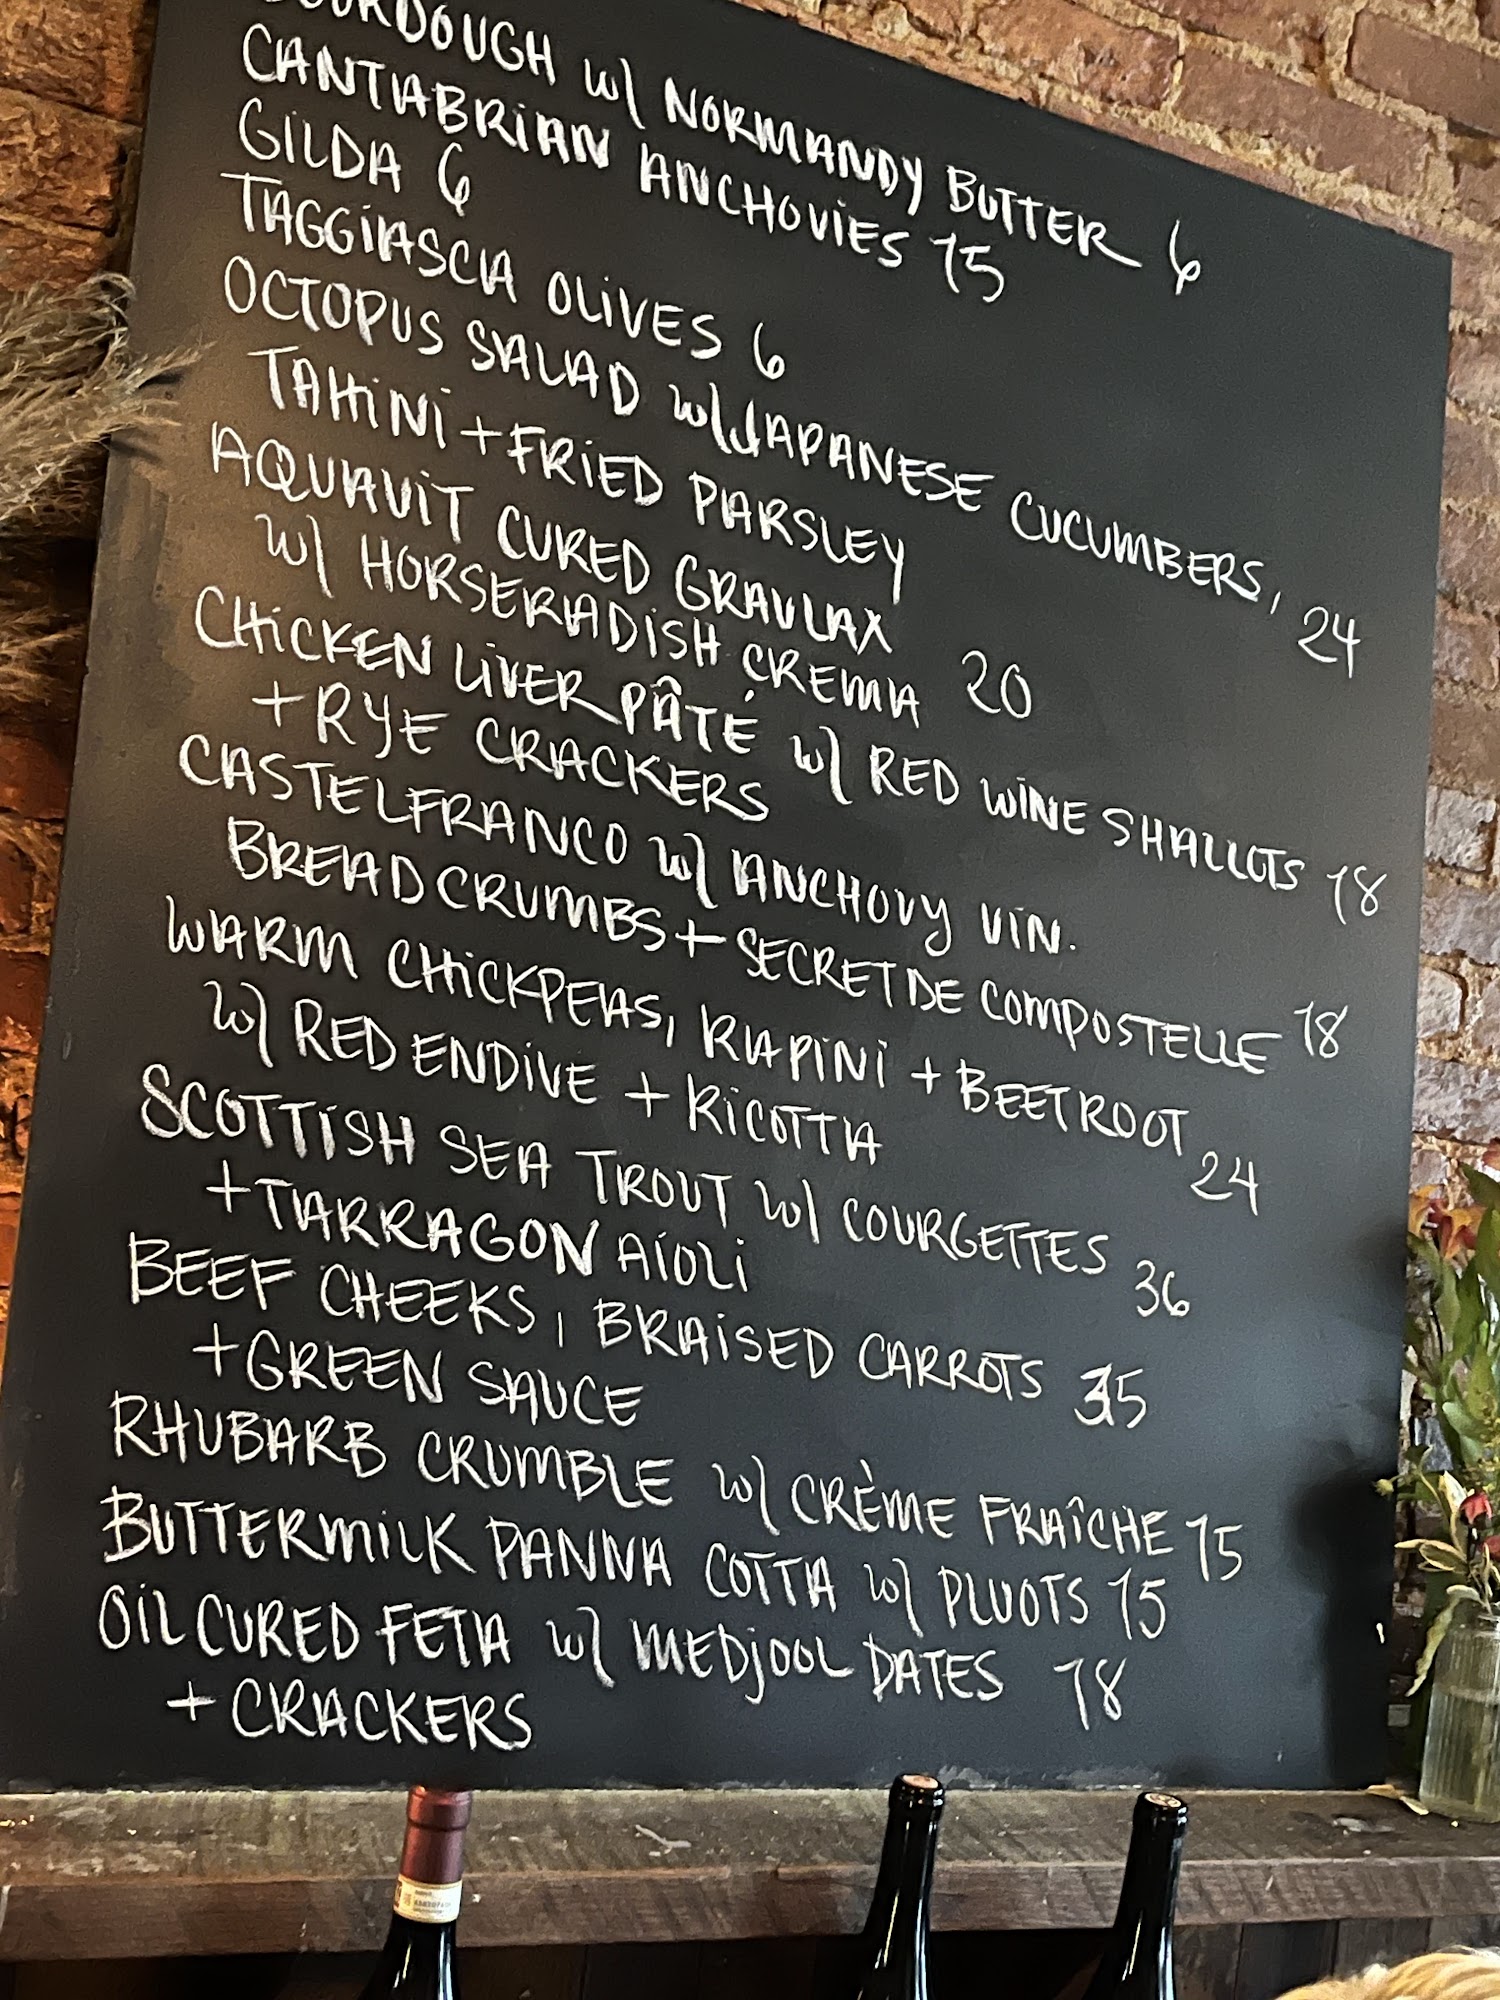 SOURDOUGH w/ NORMANDY BUTTER 6
CANTABRIAN ANCHOVIES 15
GILDA 6
TAGGIASCIA OLIVES 6
OCTOPUS SALAD w/ JAPANESE CUCUMBERS, 24
TAHINI + FRIED PARSLEY
AQUAVIT CURED GRAVLAX
w/ HORSERADISH CREMA 20
CHICKEN LIVER PÂTÉ w/ RED WINE SHALLOTS 18
+ RYE CRACKERS
CASTELFRANCO w/ ANCHOVY VIN.
BREADCRUMBS + SECRET DE COMPOSTELLE 18
WARM CHICKPEAS, RAPINI + BEETROOT 24
w/ RED ENDIVE + RICOTTA
SCOTTISH SEA TROUT w/ COURGETTES 36
+ TARRAGON AÍOLI
BEEF CHEEKS, BRAISED CARROTS 35
+ GREEN SAUCE
RHUBARB CRUMBLE w/ CRÈME FRAÎCHE 15
BUTTERMILK PANNA COTTA w/ PLUOTS 15
OIL CURED FETA w/ MEDJOOL DATES 18
+ CRACKERS